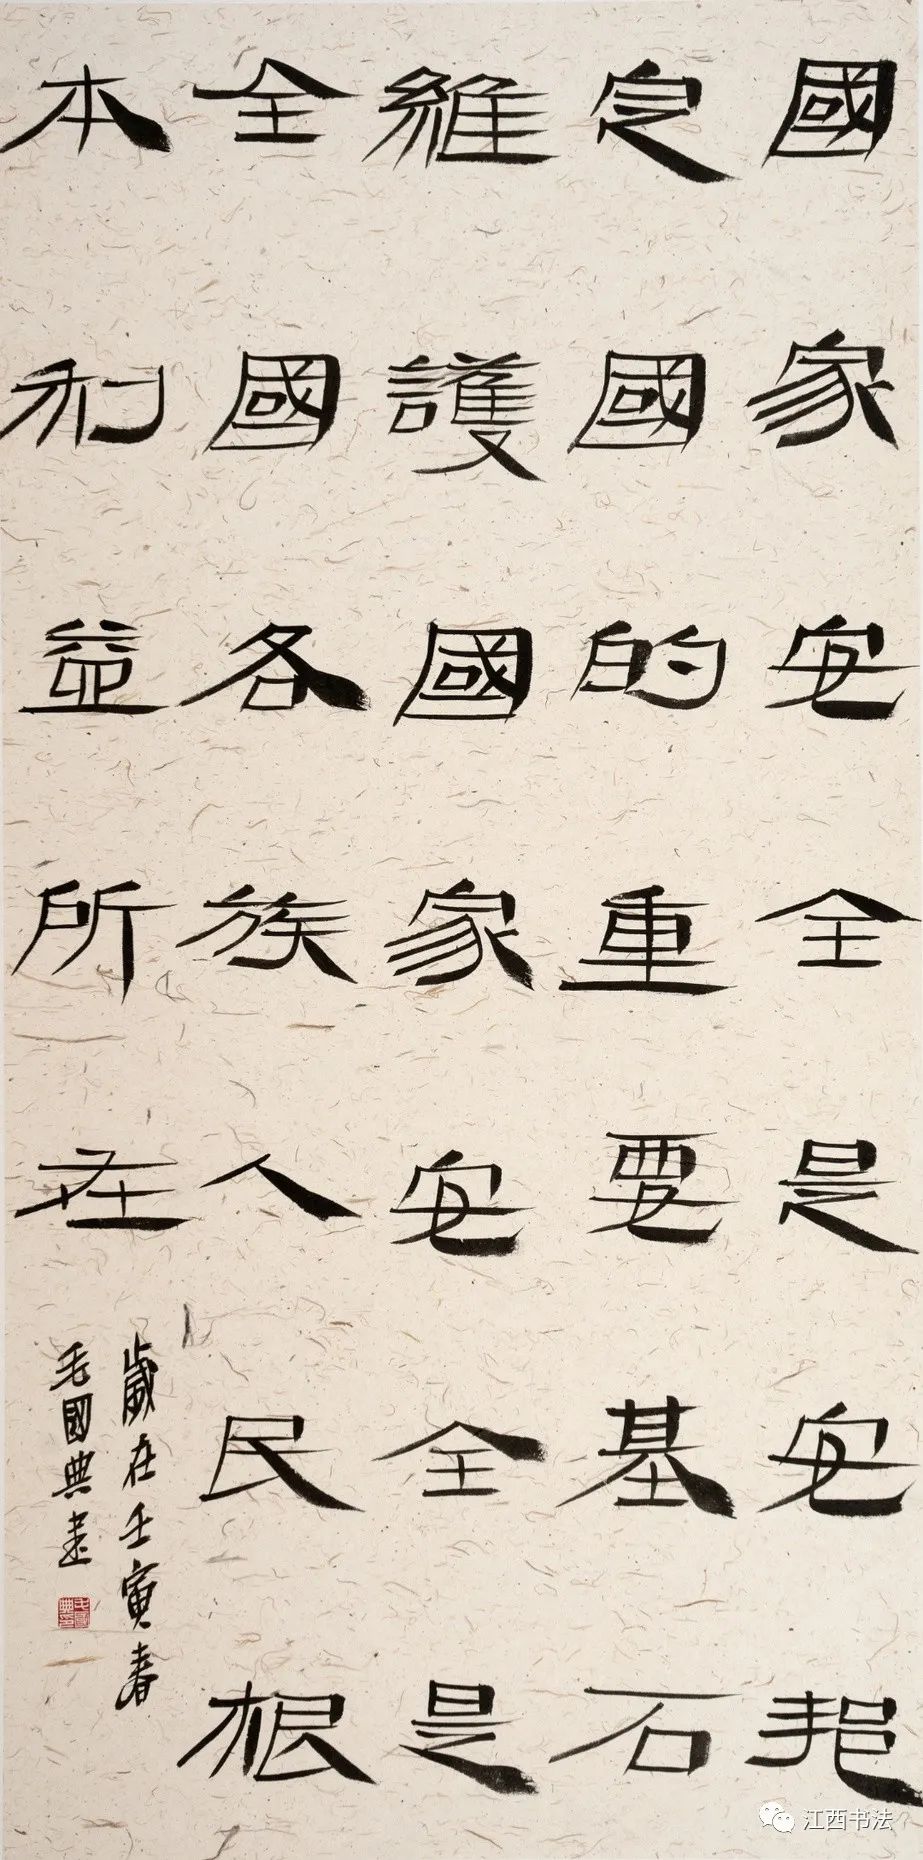 國家安全是安邦
定國的重要基石
維護國家安全是
全國各族人民根
本利益所在
歲在壬寅春
毛國典書
江西书法